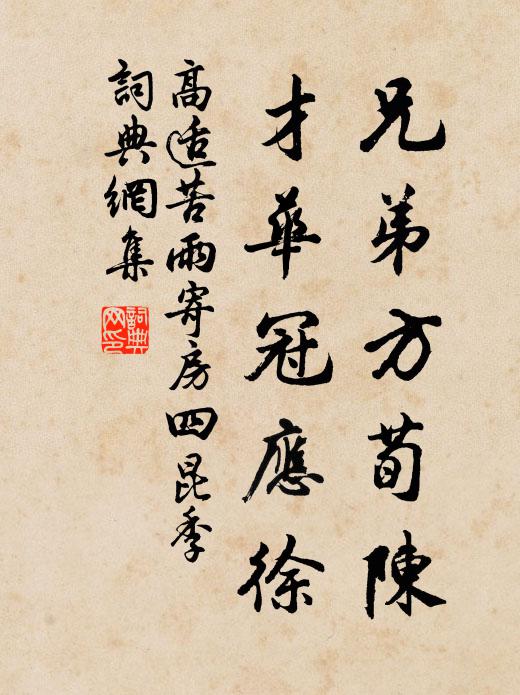 兄弟方荀陳
才華冠應徐
高适苦雨寄房四昆季
詞典網集
詞典網印